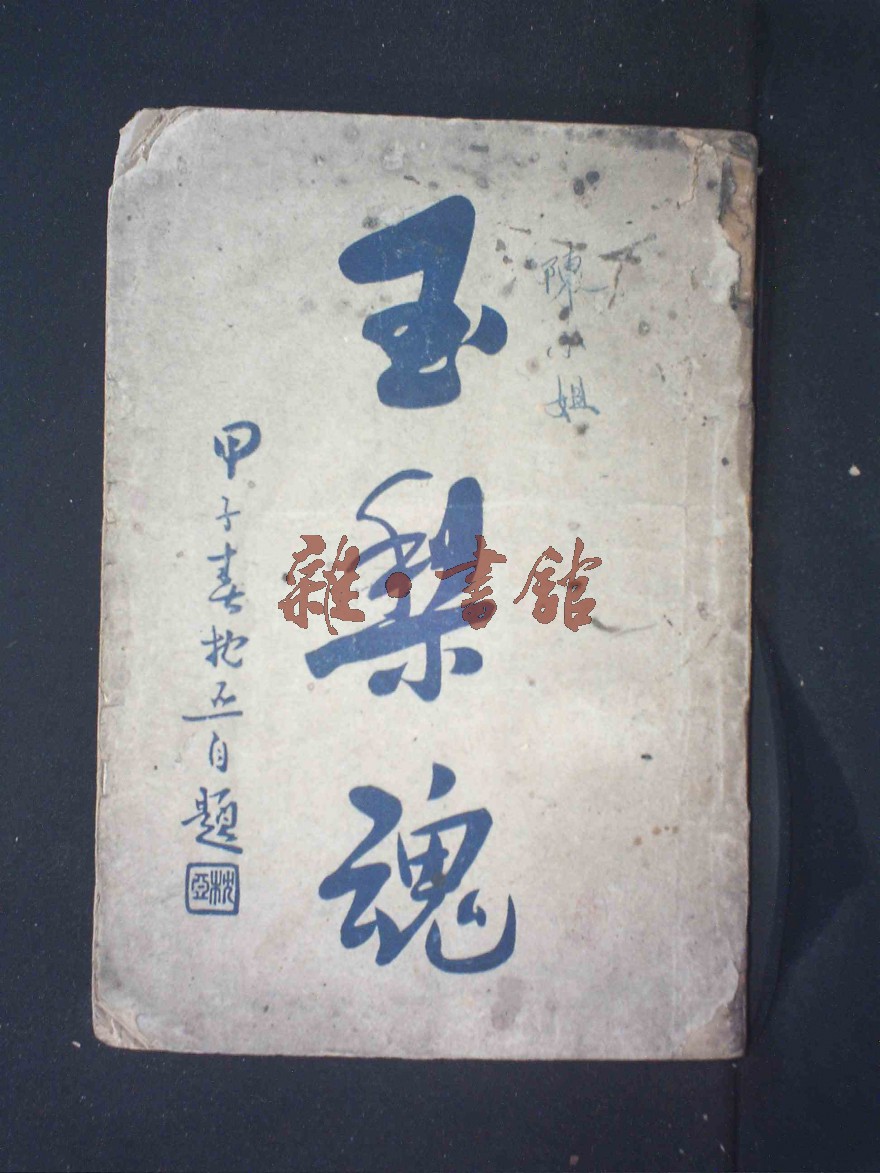 陳小姐
玉梨魂
甲子春枕亞自題
枕亞
雜·書館